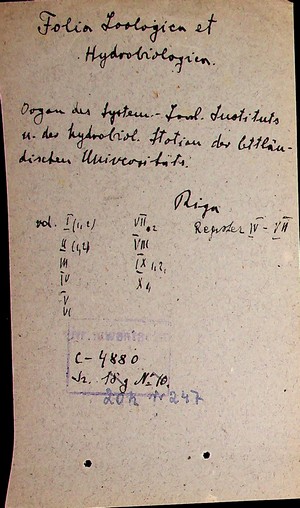 Folia Zoologica et
Hydrobiologica.
Organ des System.-Zool. Instituts
u. der hydrobiol. Station der Lettlän-
dischen Universität.
Riga
vol. I (1,2) VII 1,2 Register IV - VII
II (1,2) VIII
III IX 1,2,
IV X 1,
V
VI
C-4880
№ 10.